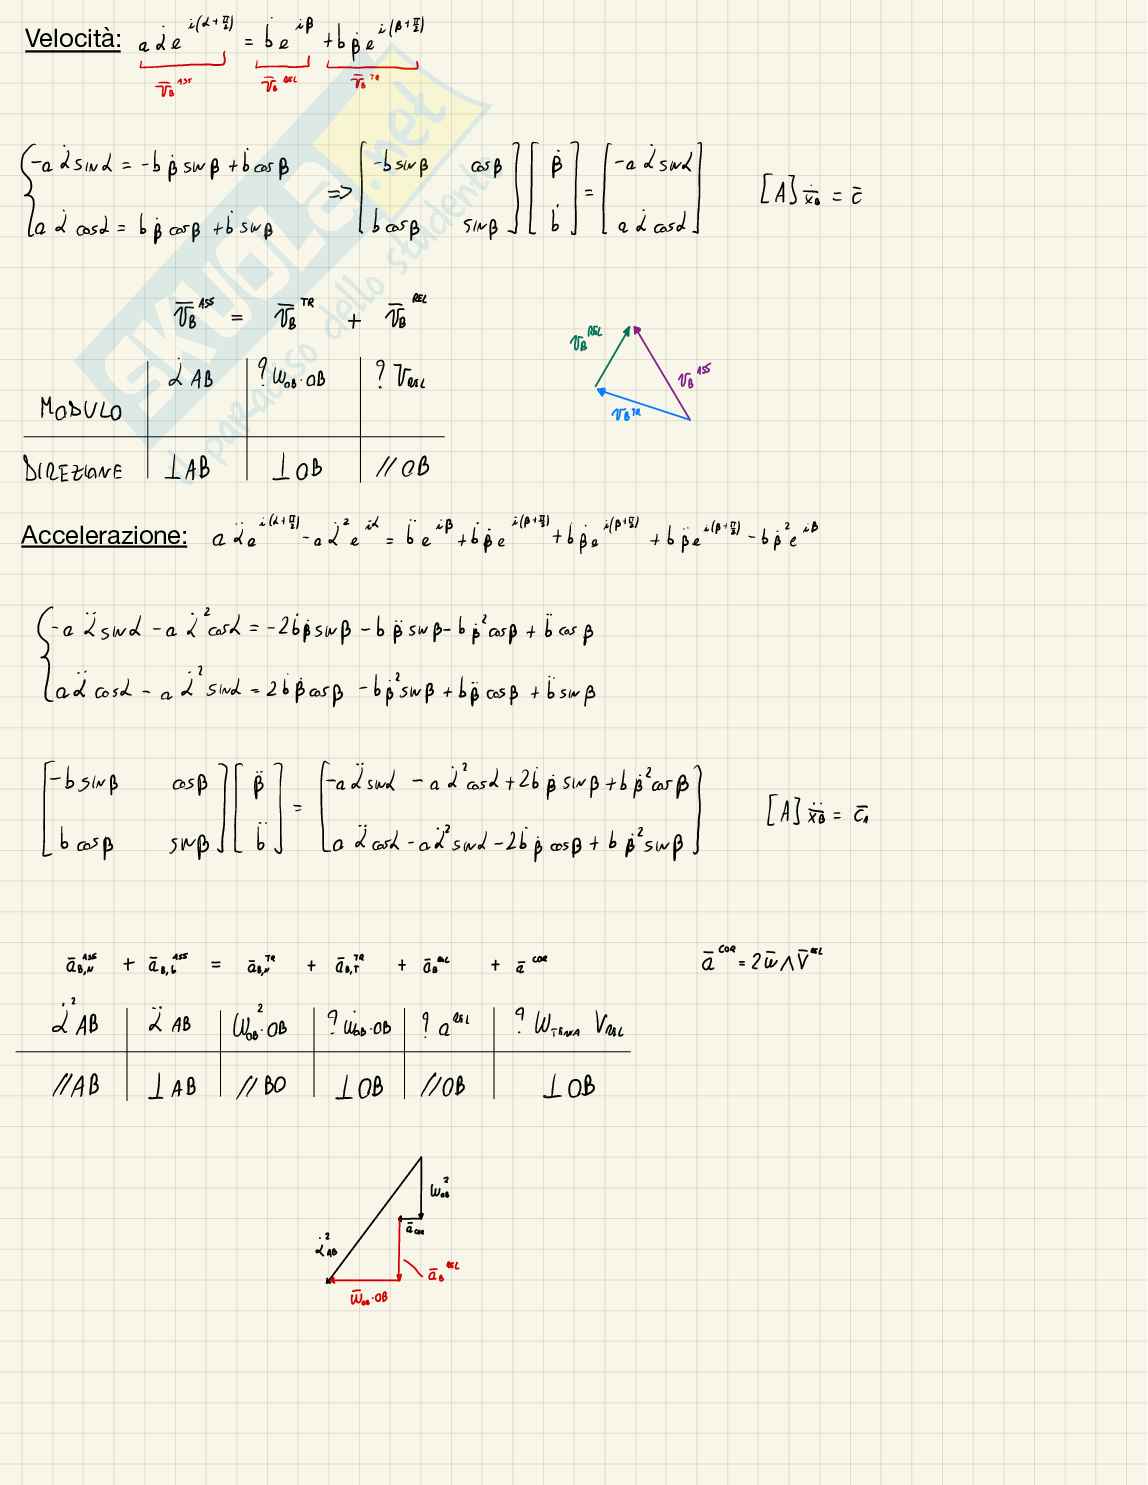 Velocità: a α̇ e^{i(α+π/2)} = ḃ e^{iβ} + b β̇ e^{i(β+π/2)}
v̄_B^{ASS} v̄_B^{REL} v̄_B^{TR}
{ -a α̇ sinα = -b β̇ sinβ + ḃ cosβ
a α̇ cosα = b β̇ cosβ + ḃ sinβ
=> [ -b sinβ cosβ ; b cosβ sinβ ] [ β̇ ; ḃ ] = [ -a α̇ sinα ; a α̇ cosα ] [A] ẋ̄_B = c̄
v̄_B^{ASS} = v̄_B^{TR} + v̄_B^{REL}
MODULO α̇ AB ? ω_{OB}·OB ? V_{REL}
DIREZIONE ⊥ AB ⊥ OB // OB
v_B^{REL} v_B^{ASS} v_B^{TR}
Accelerazione: a α̈ e^{i(α+π/2)} - a α̇² e^{iα} = b̈ e^{iβ} + ḃ β̇ e^{i(β+π/2)} + ḃ β̇ e^{i(β+π/2)} + b β̈ e^{i(β+π/2)} - b β̇² e^{iβ}
{ -a α̈ sinα - a α̇² cosα = -2ḃ β̇ sinβ - b β̈ sinβ - b β̇² cosβ + b̈ cosβ
a α̈ cosα - a α̇² sinα = 2ḃ β̇ cosβ - b β̇² sinβ + b β̈ cosβ + b̈ sinβ
[ -b sinβ cosβ ; b cosβ sinβ ] [ β̈ ; b̈ ] = [ -a α̈ sinα - a α̇² cosα + 2ḃ β̇ sinβ + b β̇² cosβ ; a α̈ cosα - a α̇² sinα - 2ḃ β̇ cosβ + b β̇² sinβ ] [A] ẍ̄_B = c̄_1
ā_{B,N}^{ASS} + ā_{B,t}^{ASS} = ā_{B,N}^{TR} + ā_{B,T}^{TR} + ā_B^{REL} + ā^{COR} ā^{COR} = 2 ω̄ ∧ V̄^{REL}
α̇² AB α̈ AB ω_{OB}²·OB ? ω̇_{OB}·OB ? a^{REL} ? ω_{TERNA} V_{REL}
// AB ⊥ AB // BO ⊥ OB // OB ⊥ OB
ω_{OB}²
ā_{COR}
α̇² AB
ā_B^{REL}
ω̄_{OB}·OB
SKUOLA.net
il paradiso dello studente